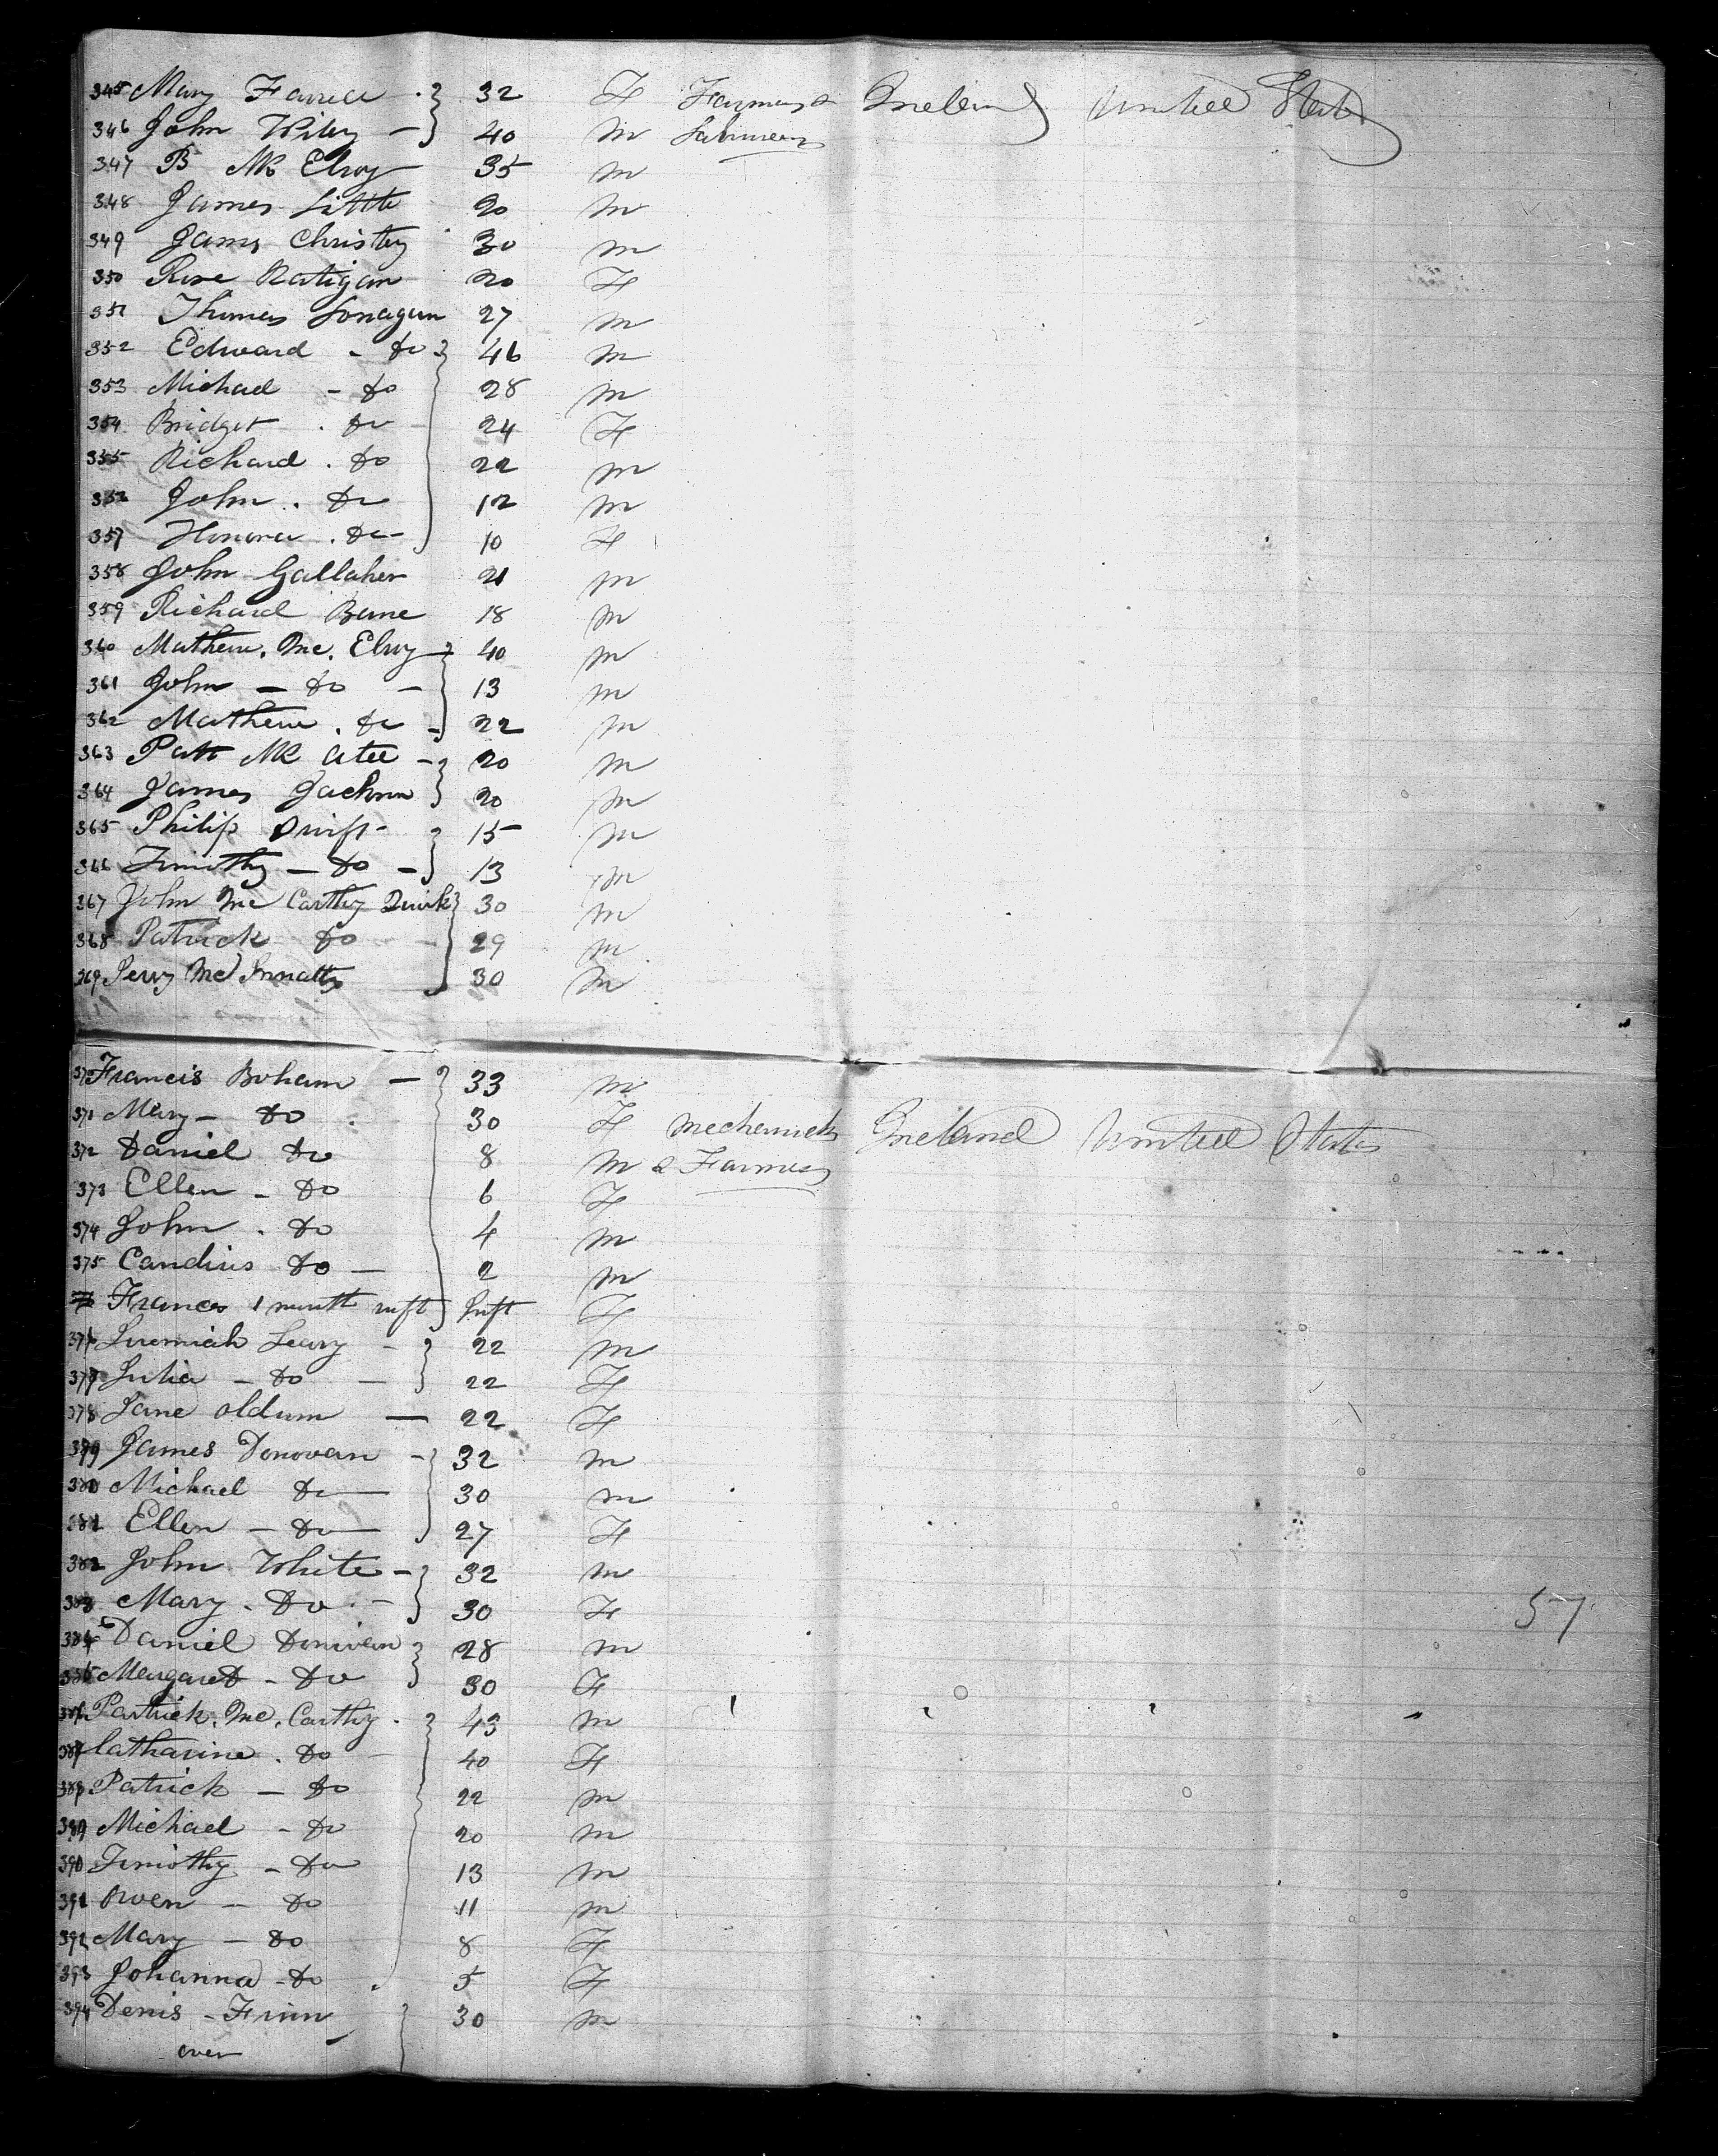 345 Mary Farrell 32 F Farmers & Ireland United States
346 John Wiley - 40 m Labourers
347 B Mc Elroy 35 m
348 James Little 20 m
349 James Christy 30 m
350 Rose Ratigan 20 F
351 Thomas Lonagan 27 m
352 Edward - do 46 m
353 Michael - do 28 m
354 Bridget . do 24 F
355 Richard . do 22 m
356 John . do 12 m
357 Honora . do - 10 F
358 John Gallaher 21 m
359 Richard Bane 18 m
360 Mathew. Mc. Elroy 40 m
361 John - do - 13 m
362 Mathew . do - 22 m
363 Patt Mc Atee - 20 m
364 James Jackson 20 m
365 Philip Swift - 15 m
366 Timothy - do - 13 m
367 John Mc Carthy Quirk 30 m
368 Patrick do - 29 m
369 Perry Mc 30 m
370 Francis Boham - 33 m
371 Mary - do 30 F Mechanicks Ireland United States
372 Daniel do 8 m & Farmers
373 Ellen - do 6 F
374 John . do 4 m
375 Candius do - 2 m
Frances 1 month inft Inft F
376 Jeremiah Leary - 22 m
377 Julia - do - 22 F
378 Jane Oldum - 22 F
379 James Donovan - 32 m
380 Michael do - 30 m
381 Ellen - do - 27 F
382 John White - 32 m
383 Mary . do . - 30 F 57
384 Daniel Donivan 28 m
385 Margaret - do 30 F
386 Patrick. Mc. Carthy . 43 m
387 Catharine . do - 40 F
388 Patrick - do 22 m
389 Michael - do 20 m
390 Timothy - do 13 m
391 Owen - do 11 m
392 Mary - do 8 F
393 Johanna - do 5 F
394 Denis - Finn 30 m
over